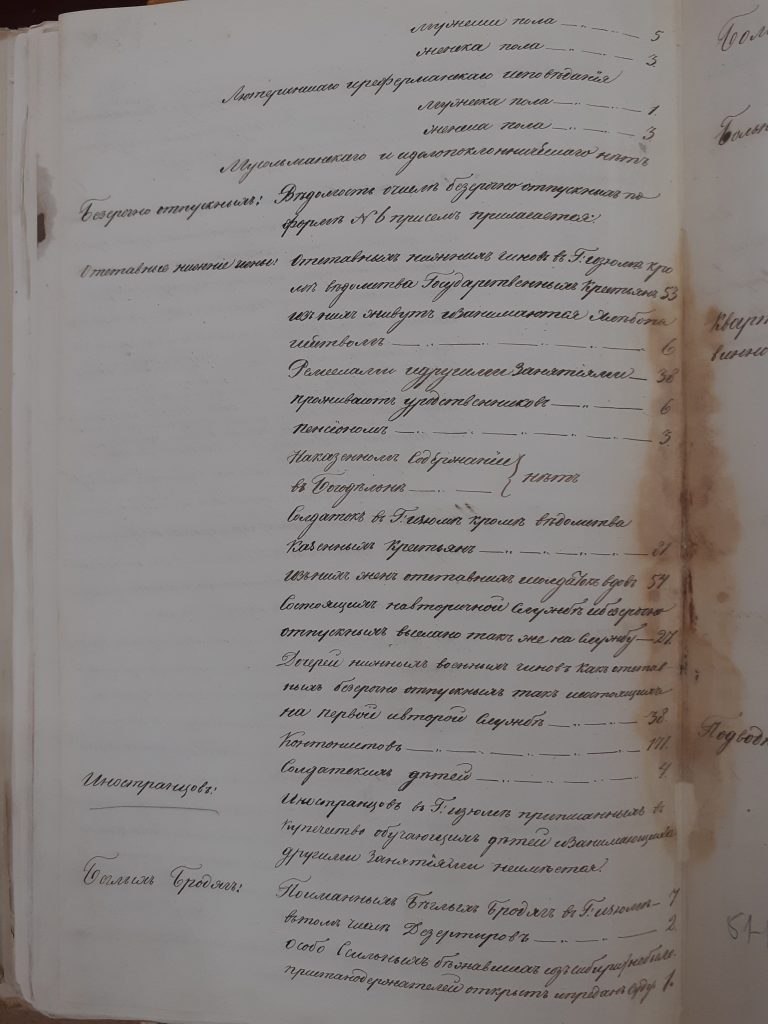 мужеска пола — 5
женска пола — 3
Лютеранскаго и реформанскаго исповѣданія
мужеска пола — 1
женска пола — 3
Мусольманскаго и идолопоклонническаго нѣтъ
Безсрочно отпускныхъ: Вѣдомость о числѣ безсрочно отпускныхъ по
формѣ N 6 при семъ прилагается:
Отставные нижніе чины: Отставныхъ нижнихъ чиновъ въ Г: Изюмѣ кро
мѣ вѣдомства Государственныхъ Крестьянъ 53
изъ нихъ живутъ и занимаются хлѣбопа
шествомъ — 6
Ремеслами и другими занятіями — 38
проживаютъ у родственниковъ — 6
пенсіономъ — 3
На казенномъ содержаніи
въ Богодѣльнѣ — } нѣтъ
Солдатокъ въ Г: Изюмѣ кромѣ вѣдомства
казенныхъ Крестьянъ — 81
изъ нихъ женъ отставныхъ солдатъ вдовъ 54
Состоящихъ на вторичной службѣ и безсрочно
отпускныхъ выслано такъ же на службу — 27
Дочерей нижнихъ военныхъ чиновъ какъ отстав
ныхъ безсрочно отпускныхъ такъ и состоящихъ
на первой и второй службѣ — 38
Контонистовъ — 171
Солдатскихъ дѣтей — 4
Иностранцовъ: Иностранцовъ въ Г: Изюмѣ приписанныхъ въ
купечество обучающихъ дѣтей и занимающихся
другими занятіями неимѣется.
Бѣглыхъ Бродягъ: Пойманныхъ Бѣглыхъ Бродягъ въ Г: Изюмѣ — 7
въ томъ числѣ Дезертировъ — 2
Особо Ссыльныхъ бѣжавшихъ изъ Сибири небыло.
пристанодержателей открытъ и преданъ суду 1.
Больн
Кварт
винно
Подводн
51-